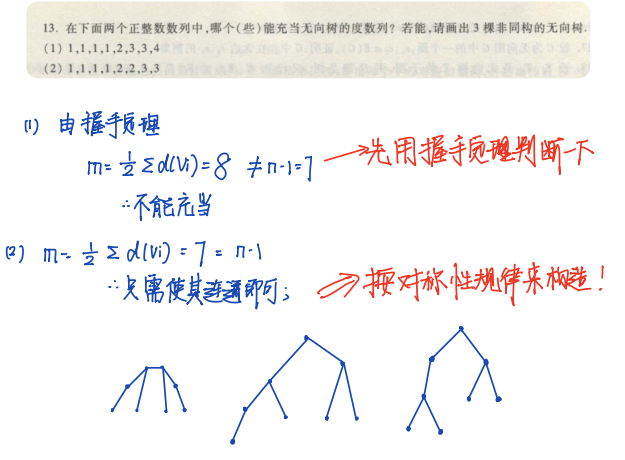 13. 在下面两个正整数数列中,哪个(些)能充当无向树的度数列? 若能,请画出 3 棵非同构的无向树.
(1) 1,1,1,1,2,3,3,4
(2) 1,1,1,1,2,2,3,3
(1) 由握手原理
m=½Σd(Vi)=8 ≠n-1=7 →先用握手原理判断一下
∴不能充当
(2) m=½Σd(Vi)=7=n-1
∴只需使其连通即可; →按对称性规律来构造!